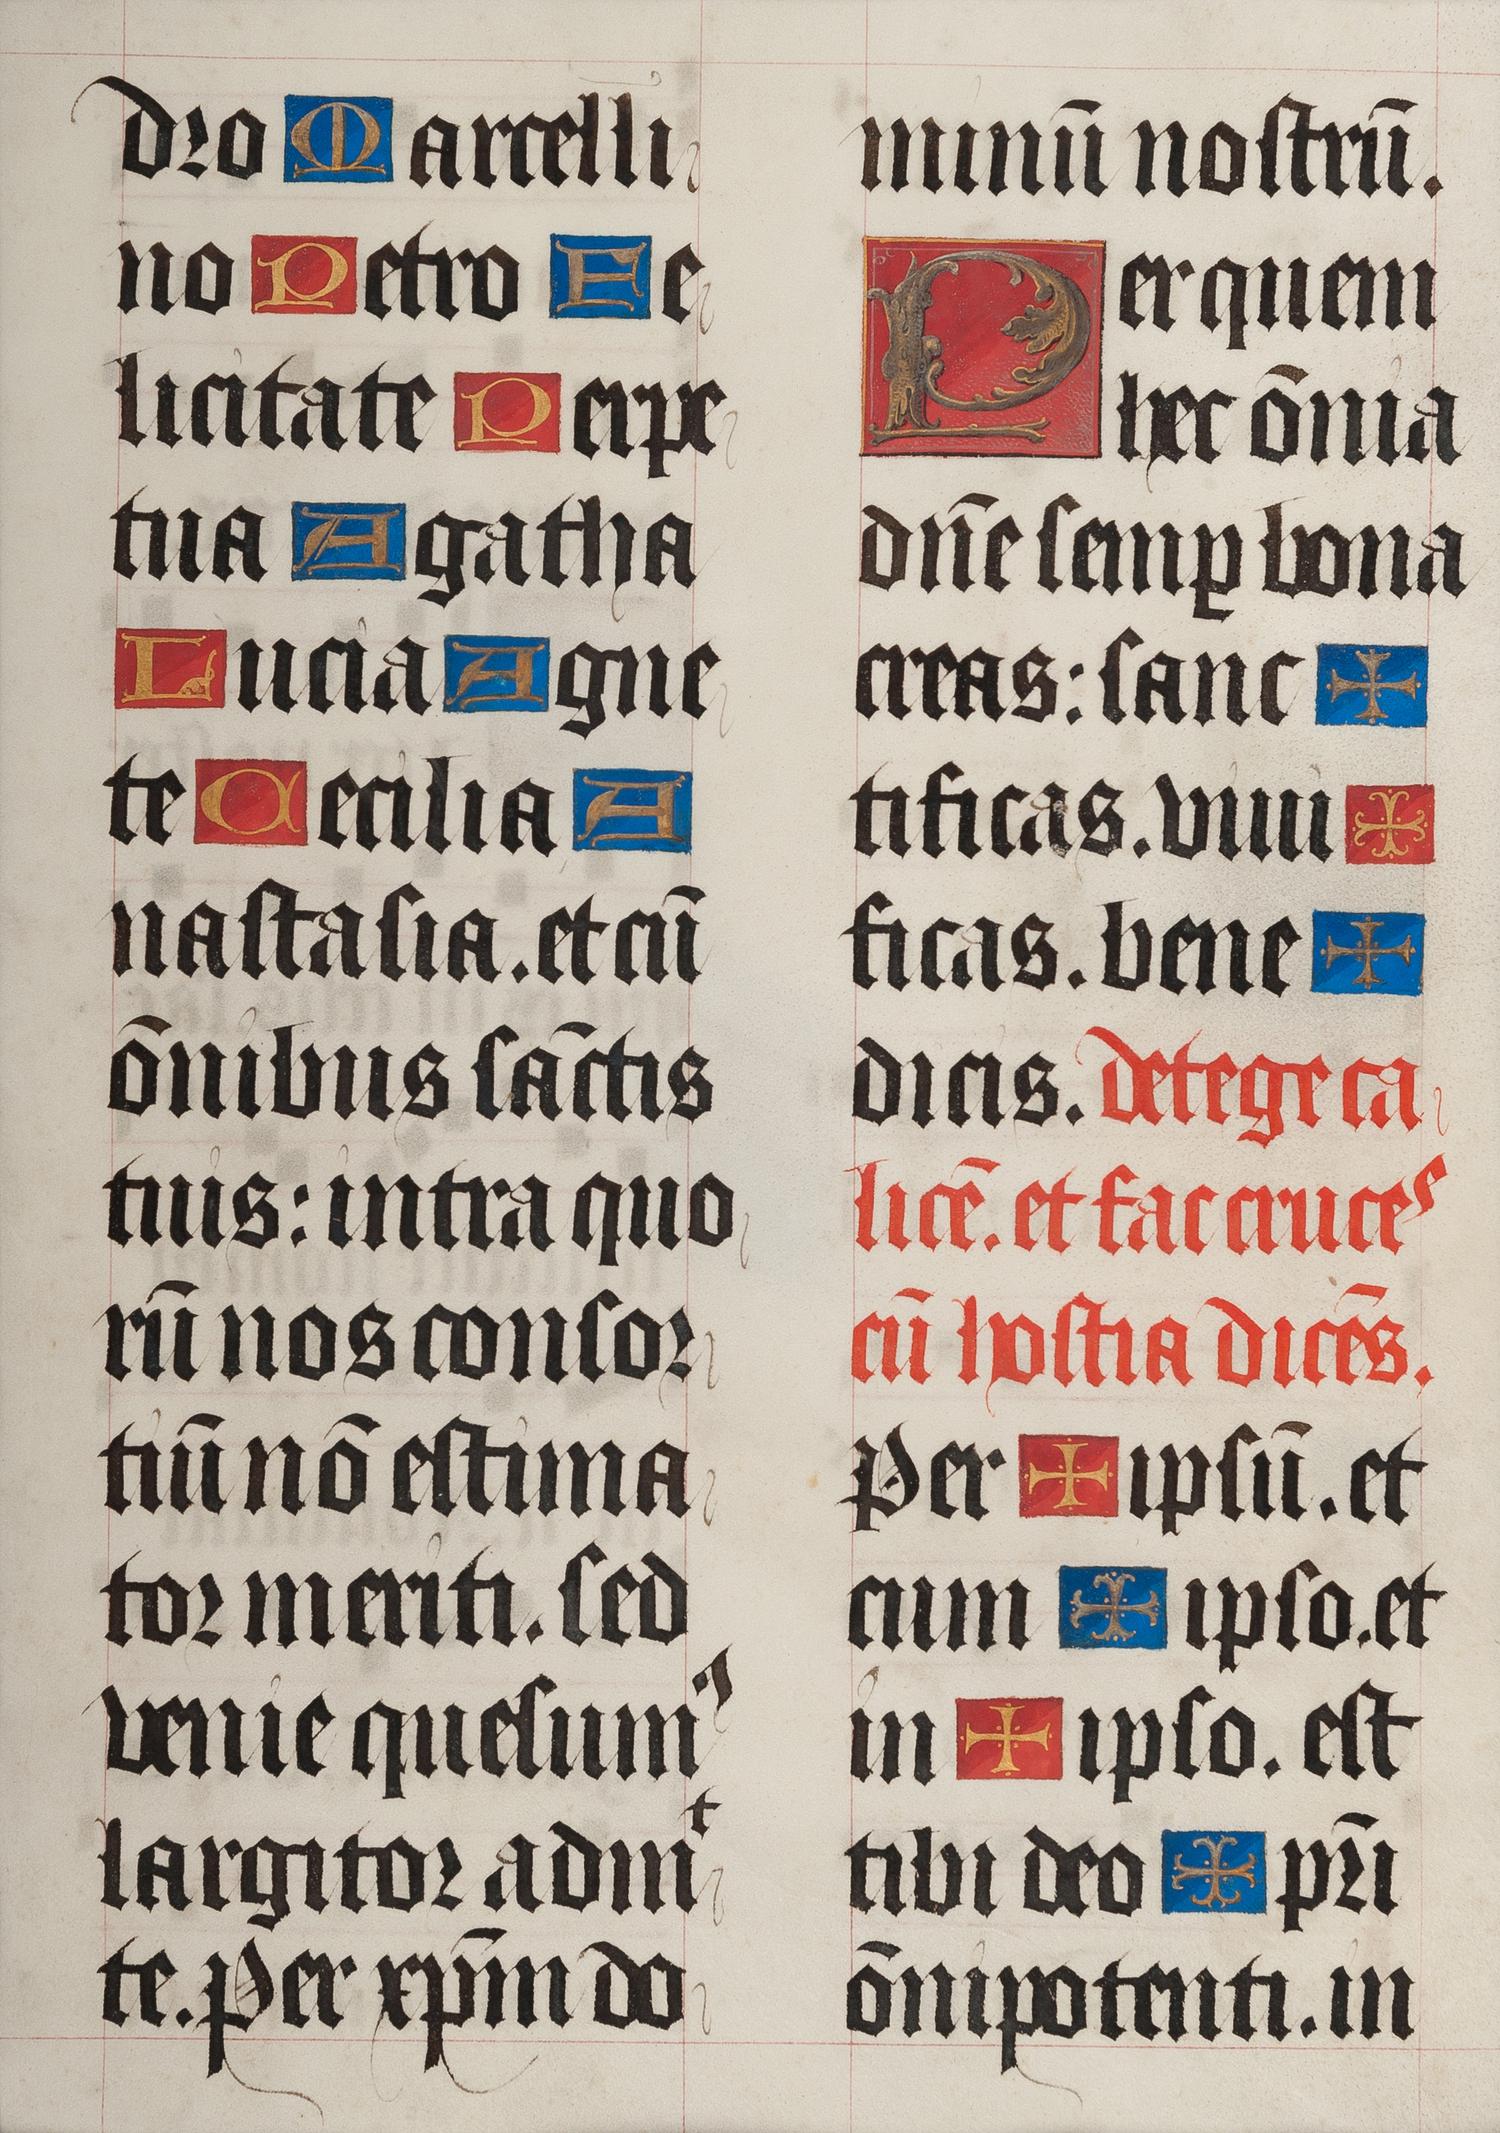 dro Marcelli
no Petro Fe
licitate Perpe
tua Agatha
Lucia Agne
te Cecilia A
nastasia. et cū
ōnibus sāctis
tuis: intra quo
rū nos consor
tiū nō estima
tor meriti. sed
venie quesumꝰ
largitor admᵗ
te. Per xp̄m do
minū nostrū.
Per quem
hec ōnia
dn̄e semꝑ bona
creas: sanc ✠
tificas. vivi ✠
ficas. bene ✠
dicis. detege ca
licē. et fac cruces
cū hostia dicēs.
Per ✠ ipsū. et
cum ✠ ipso. et
in ✠ ipso. est
tibi deo ✠ pr̄i
ōnipotenti. in